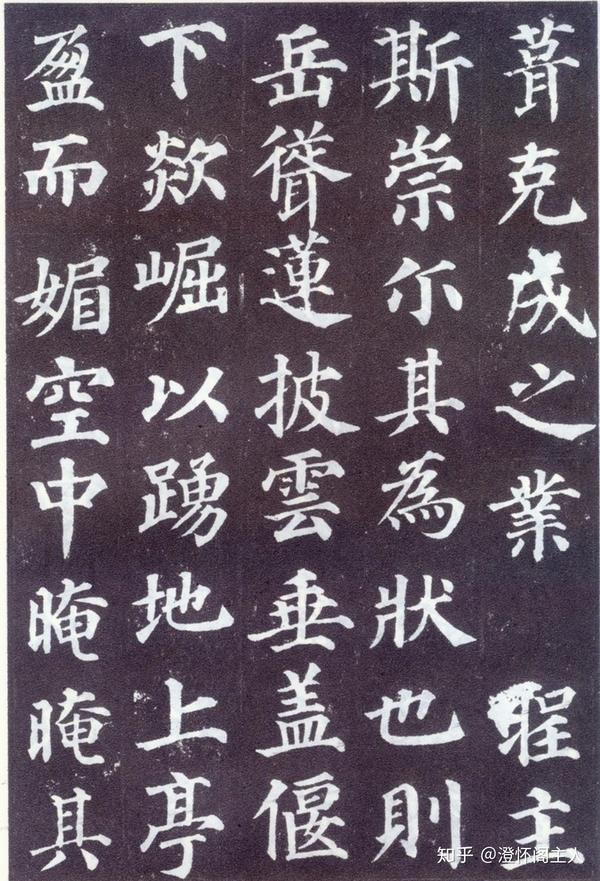 葺克成之業 聖主
斯崇尒其為狀也則
岳聳蓮披雲垂盖偃
下欻崛以踴地上亭
盈而媚空中晻晻其
知乎 @澄怀阁主人